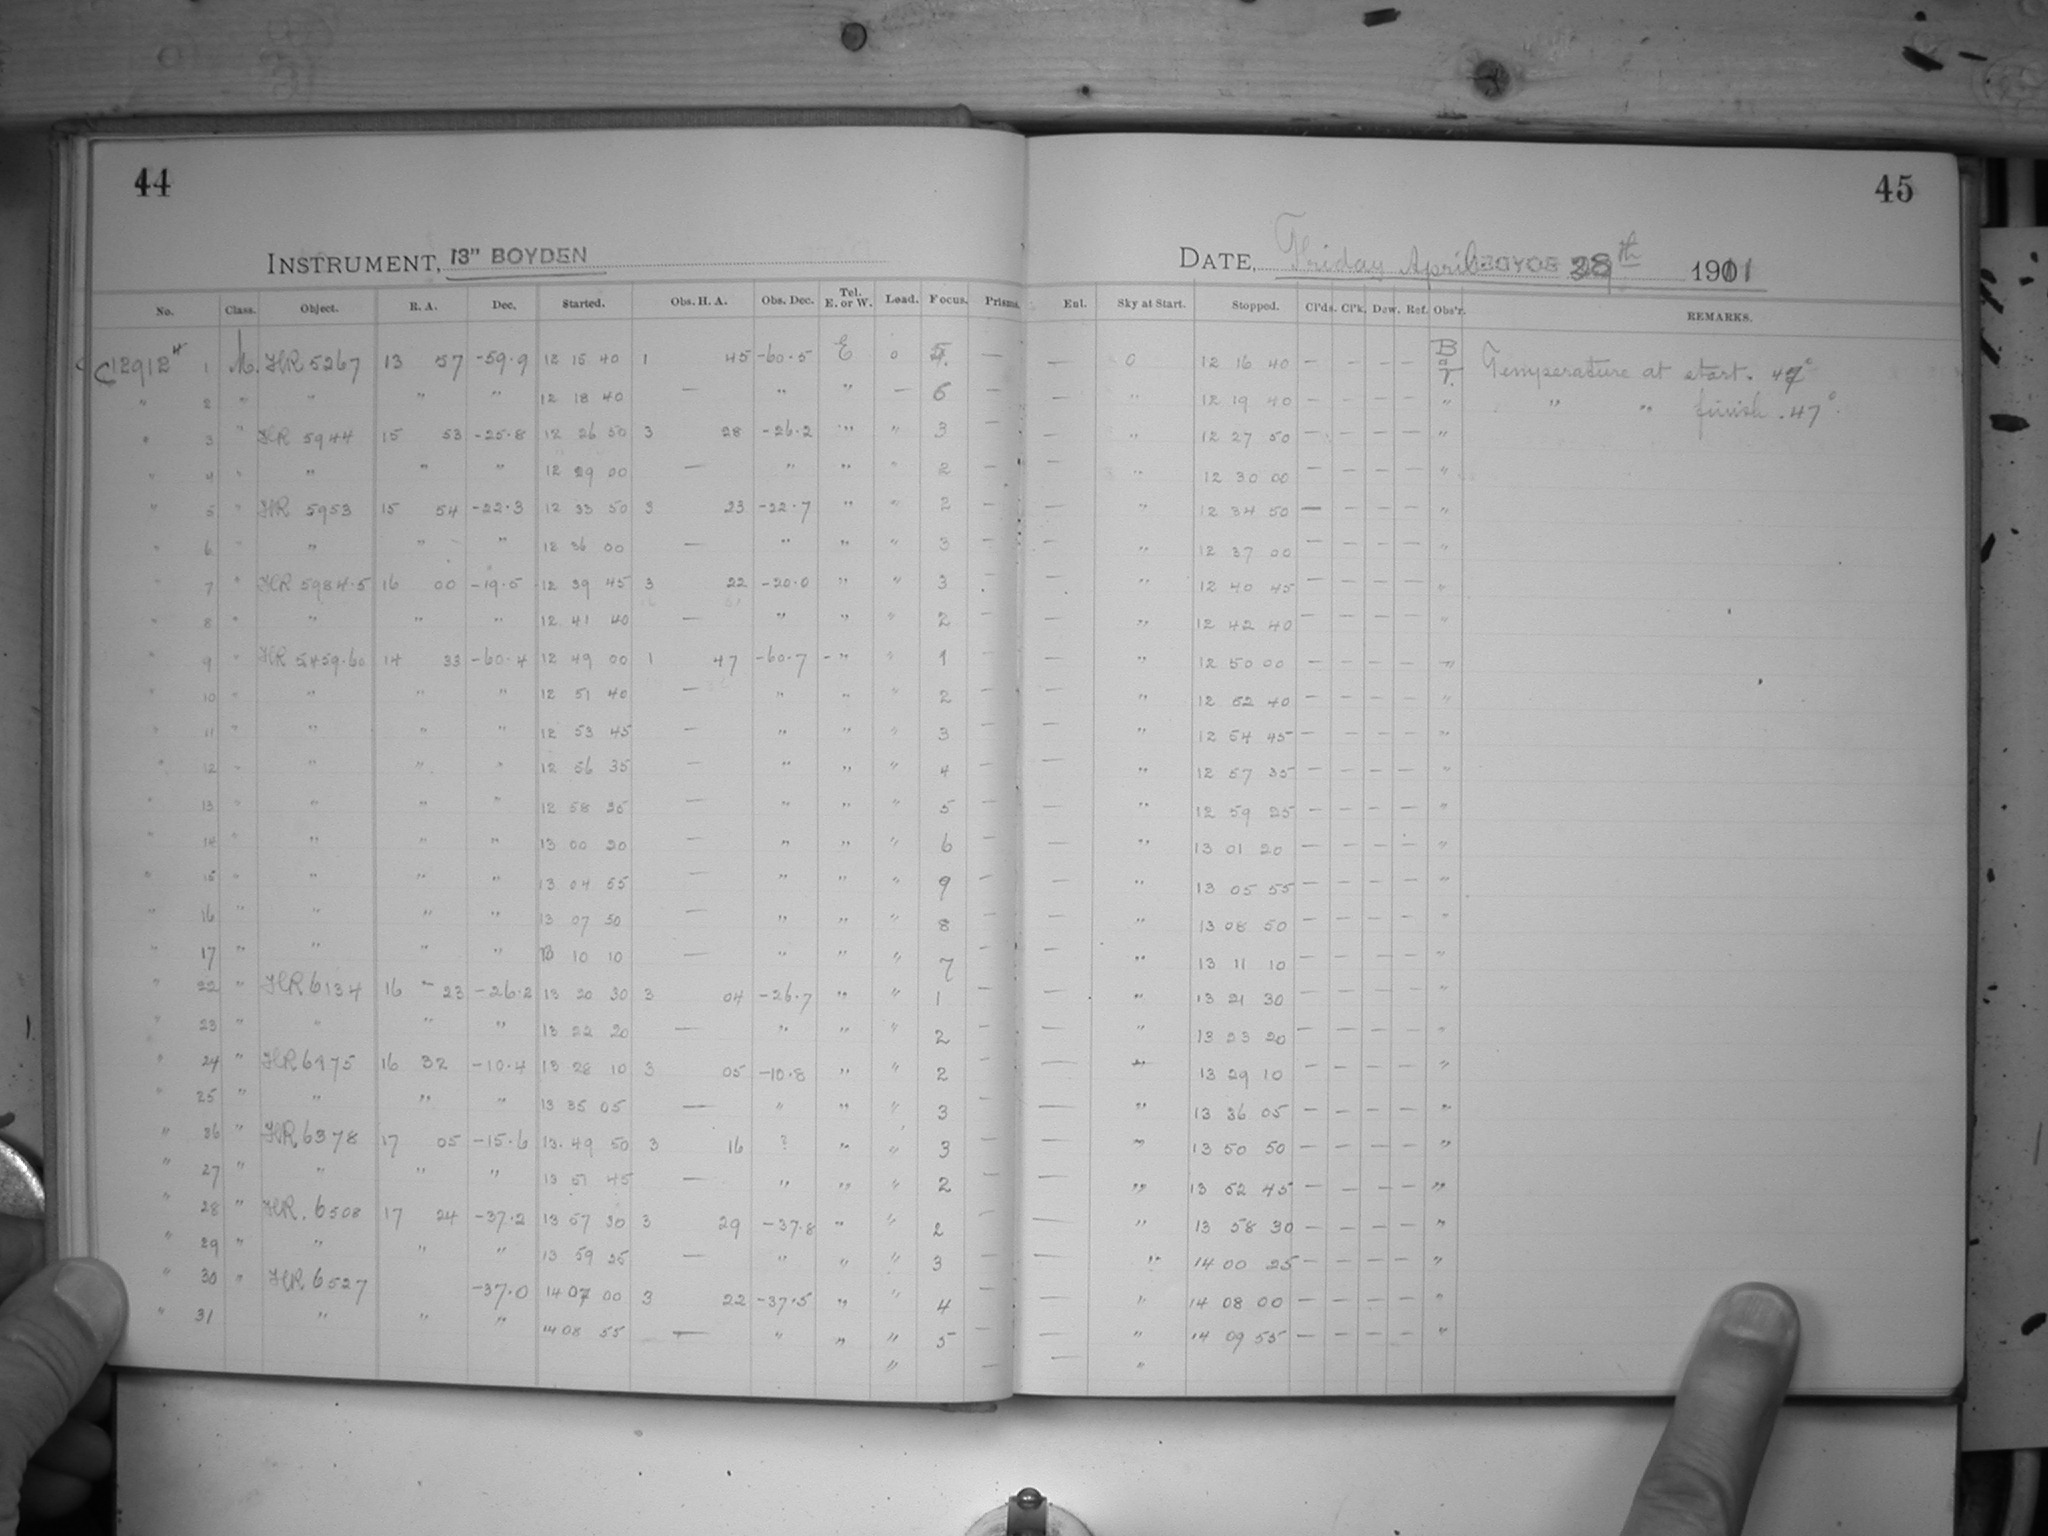 44
45
INSTRUMENT, 13" BOYDEN
DATE, Friday April 28th 1911
No. Class. Object. R. A. Dec. Started. Obs. H. A. Obs. Dec. Tel. E. or W. Load. Focus. Prisms. Enl. Sky at Start. Stopped. Cl'ds. Cl'k. Dew. Ref. Obs'r. REMARKS.
C12912 1 M. HR 5267 13 57 -59.9 12 15 40 1 45 -60.5 E 0 — — 0 12 16 40 — — — — B a T. Temperature at start. 47°
" 2 " " " " 12 18 40 — " " — 6 — — " 12 19 40 — — — — " " " finish. 47°.
" 3 " HR 5944 15 53 -25.8 12 26 50 3 28 -26.2 " " 3 — — " 12 27 50 — — — — "
" 4 " " " " 12 29 00 — " " " 2 — — " 12 30 00 — — — — "
" 5 " HR 5953 15 54 -22.3 12 33 50 3 23 -22.7 " " 2 — — " 12 34 50 — — — — "
" 6 " " " " 12 36 00 — " " " 3 — — " 12 37 00 — — — — "
" 7 " HR 5984.5 16 00 -19.5 12 39 45 3 22 -20.0 " " 3 — — " 12 40 45 — — — — "
" 8 " " " " 12 41 40 — " " " 2 — — " 12 42 40 — — — — "
" 9 " HR 5459.60 14 33 -60.4 12 49 00 1 47 -60.7 - " " 1 — — " 12 50 00 — — — — "
" 10 " " " " 12 51 40 — " " " 2 — — " 12 52 40 — — — — "
" 11 " " " " 12 53 45 — " " " 3 — — " 12 54 45 — — — — "
" 12 " " " " 12 56 35 — " " " 4 — — " 12 57 35 — — — — "
" 13 " " " " 12 58 25 — " " " 5 — — " 12 59 25 — — — — "
" 14 " " " " 13 00 20 — " " " 6 — — " 13 01 20 — — — — "
" 15 " " " " 13 04 55 — " " " 9 — — " 13 05 55 — — — — "
" 16 " " " " 13 07 50 — " " " 8 — — " 13 08 50 — — — — "
" 17 " " " " 13 10 10 — " " " 7 — — " 13 11 10 — — — — "
" 22 " HR 6134 16 23 -26.2 13 20 30 3 04 -26.7 " " 1 — — " 13 21 30 — — — — "
" 23 " " " " 13 22 20 — " " " 2 — — " 13 23 20 — — — — "
" 24 " HR 6175 16 32 -10.4 13 28 10 3 05 -10.8 " " 2 — — " 13 29 10 — — — — "
" 25 " " " " 13 35 05 — " " " 3 — — " 13 36 05 — — — — "
" 26 " HR 6378 17 05 -15.6 13.49 50 3 16 ? " " 3 — — " 13 50 50 — — — — "
" 27 " " " " 13 51 45 — " " " 2 — — " 13 52 45 — — — — "
" 28 " HR. 6508 17 24 -37.2 13 57 30 3 29 -37.8 " " 2 — — " 13 58 30 — — — — "
" 29 " " " " 13 59 25 — " " " 3 — — " 14 00 25 — — — — "
" 30 " HR 6527 -37.0 14 07 00 3 22 -37.5 " " 4 — — " 14 08 00 — — — — "
" 31 " " " 14 08 55 — " " " 5 — — " 14 09 55 — — — — "
" — — "